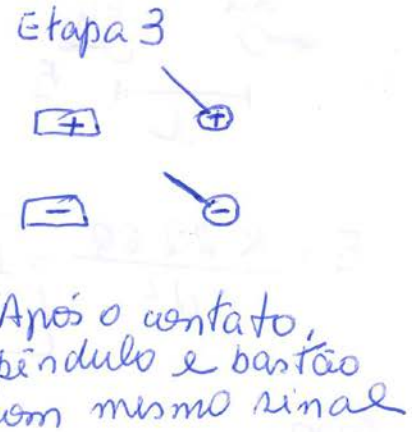 Etapa 3
+ +
- -
Após o contato,
pêndulo e bastão
com mesmo sinal